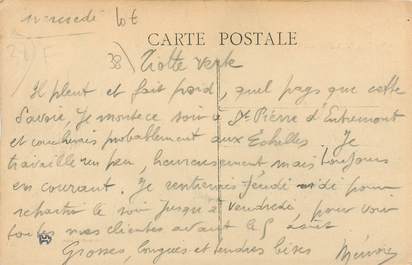 mercredi lot
CARTE POSTALE
38) Grotte verte
Il pleut et fait froid, quel pays que cette
Savoie, Je monte ce soir à St Pierre d'Entremont
et coucherai probablement aux Echelles. Je
travaille un peu, heureusement mais toujours
en courant. Je rentrerai Jeudi midi pour
repartir le soir jusqu'à vendredi, pour voir
toutes mes clientes avant le 5 août
Grosses, longues et tendres bises